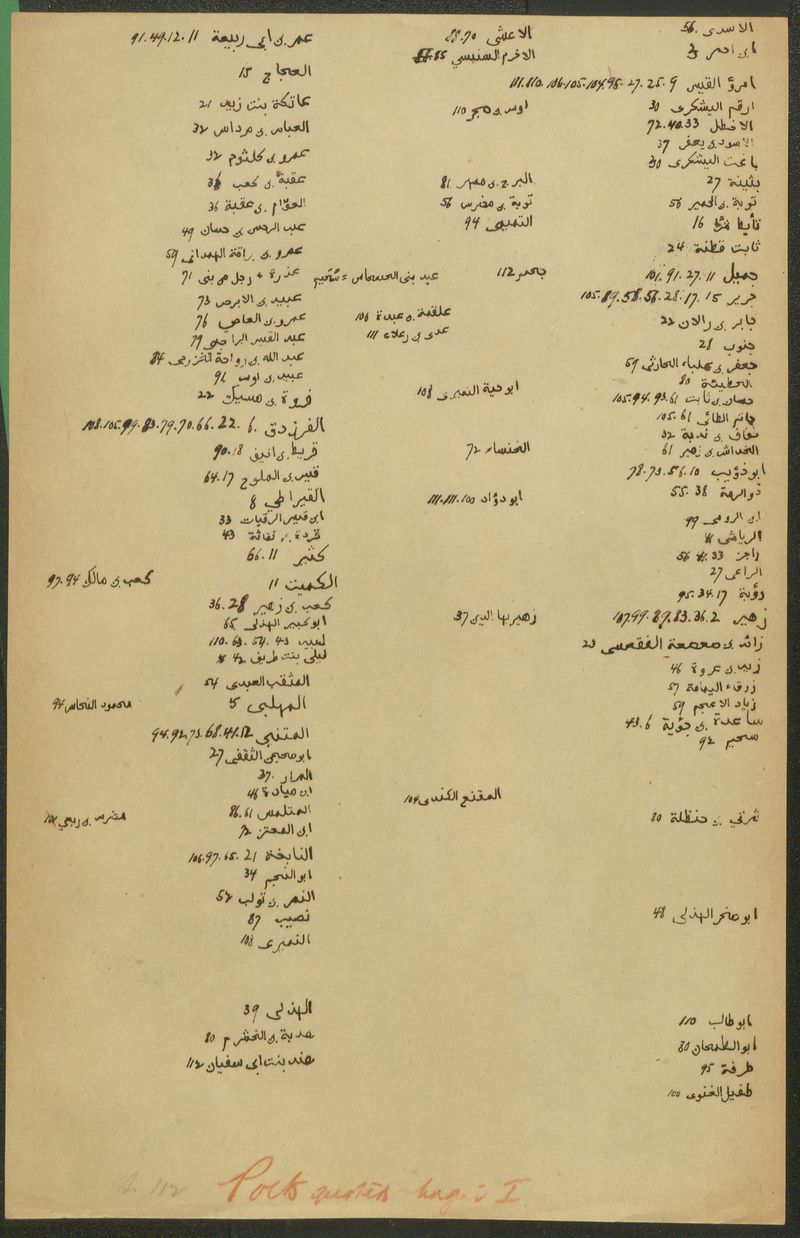 الاسدى 56.
ابن احمر
امرؤ القيس 9 .25 .27 .98 .104 .105 .106 .110 .111
ارقم اليشكرى 30
الاخطل 33 .40 .72
الاسود بن يعفر 37
باعث اليشكرى 30
بثينة 27
توبة بن الحمير 56
تأبط شرا 16
ثابت قطنة 24
جميل 11 .27 .91 .101
جرير 15 .17 .28 .56 .58 .89 .105
جابر بن رالان 22
جنوب 28
جعفر بن علباء الحارثى 59
الحطيئة 80
حسان بن ثابت 61 .93 .94 .105
حاتم الطائى 61 .105
خفاف بن ندبة 32
الخداش بن زهير 61
ابو ذؤيب 10 .56 .73 .78
ذو الرمة 38 .55
ابن الرومى 99
الرياشى
راجز 33
الراعى 27
رؤبة 17 .34 .95
زهير 2 .36 .83 .89 .99 .107
زائد بن صعصعة الفقعسى 23
زيد بن عروة 46
زرقاء اليمامة 57
زياد الاعجم 59
ساعدة بن جؤية 6 .43
سحيم 92
حنظلة 80
ابو صخر الهذلى 48
ابو طالب 110
ابو الطمحان 80
طرفة 95
طفيل الغنوى 100
الاعشى 70 .88
الاخرم السنبسى 85
اوس بن حجر 110
البرج بن مسهر 81
توبة بن مضرس 56
التميمى 94
جحدر 112
عبد بنى الحسحاس = سُحَيم
علقمة بن عبدة 106
عدى بن رعلاء 111
ابو حية النميرى 108
الخنساء 72
ابو دؤاد 100 .111 .111
زهير بها الدين 37
المقنع الكندى 104
عمر بن ابى ربيعة 11 .12 .49 .91
العجاج 15
عاتكة بنت زيد 21
العباس بن مرداس 32
عمرو بن كلثوم 32
عقبة بن كعب 36
العوّام بن عقبة 36
عبد الرحمن بن حسان 49
عمرو بن براقة الهمدانى 59
عذرة + رجل من بنى 71
عبيد بن الابرص 73
عمرو بن العاصى 76
عبد القيس 79
عبد الله بن رواحة الخزرجى 84
عبيد بن اوس 96
فروة بن مسيك 22
الفرزدق 6 .22 .66 .70 .79 .83 .99 .105 .108
قريط بن انيف 18 .90
قيس بن الملوح 17 .64
القيراطى 8
ابن قيس الرقيات 33
قردة بن نفاثة 43
كثير 11 .66
الكميت 11
كعب بن مالك 94 .97
كعب بن زهير 28 .36
ابو كبير الهذلى 65
لبيد 43 .54 .63 .110
ليلى بنت طريف 42
المثقب العبدى 54
المهلبى 5
محمود النحاس 94
المتنبى 12 .41 .68 .73 .92 .94
ابو محجن الثقفى 27
المرار 37
ابن ميادة 46
المتلمس 61 .86
مضرس بن ربعى
ابن المعتز 72
النابغة 21 .65 .97 .106
ابو النجم 34
النمر بن تولب 52
نصيب 87
النميرى 108
الهذلى 39
هدبة بن الخشرم 80
هند بنت ابى سفيان 112
Poets quoted I